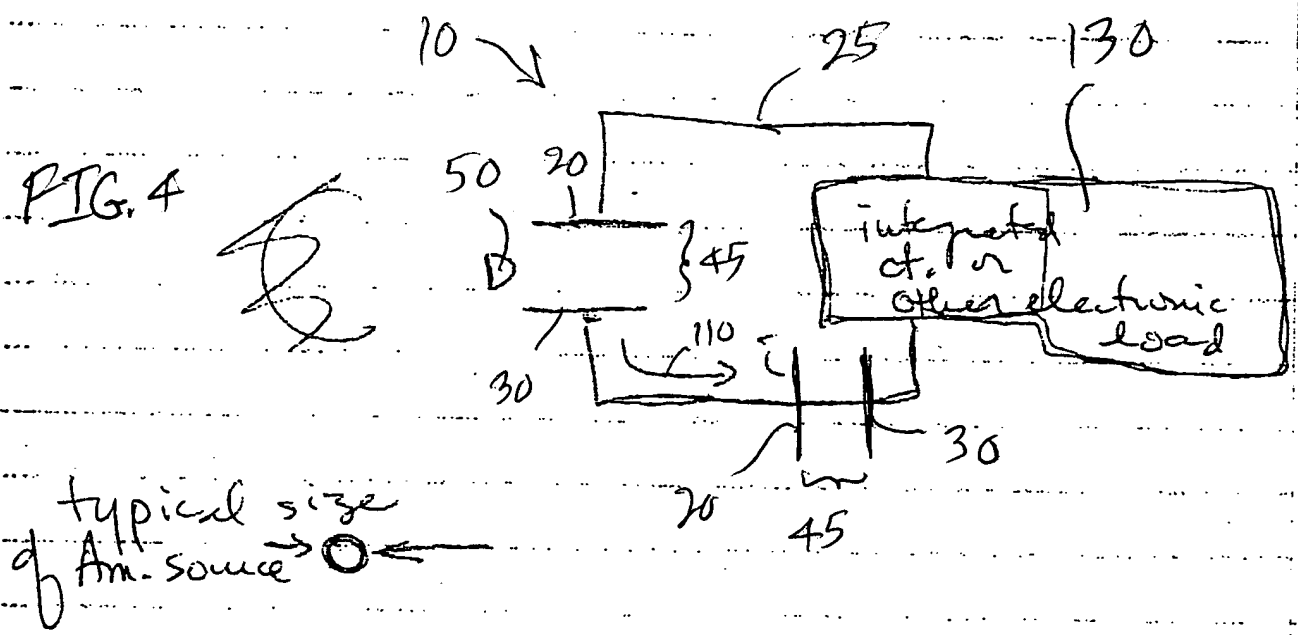 10
25
130
FIG. 4
50
20
45
integrated
ct. or
other electronic
load
110
i
30
20
30
45
typical size
of Am. source